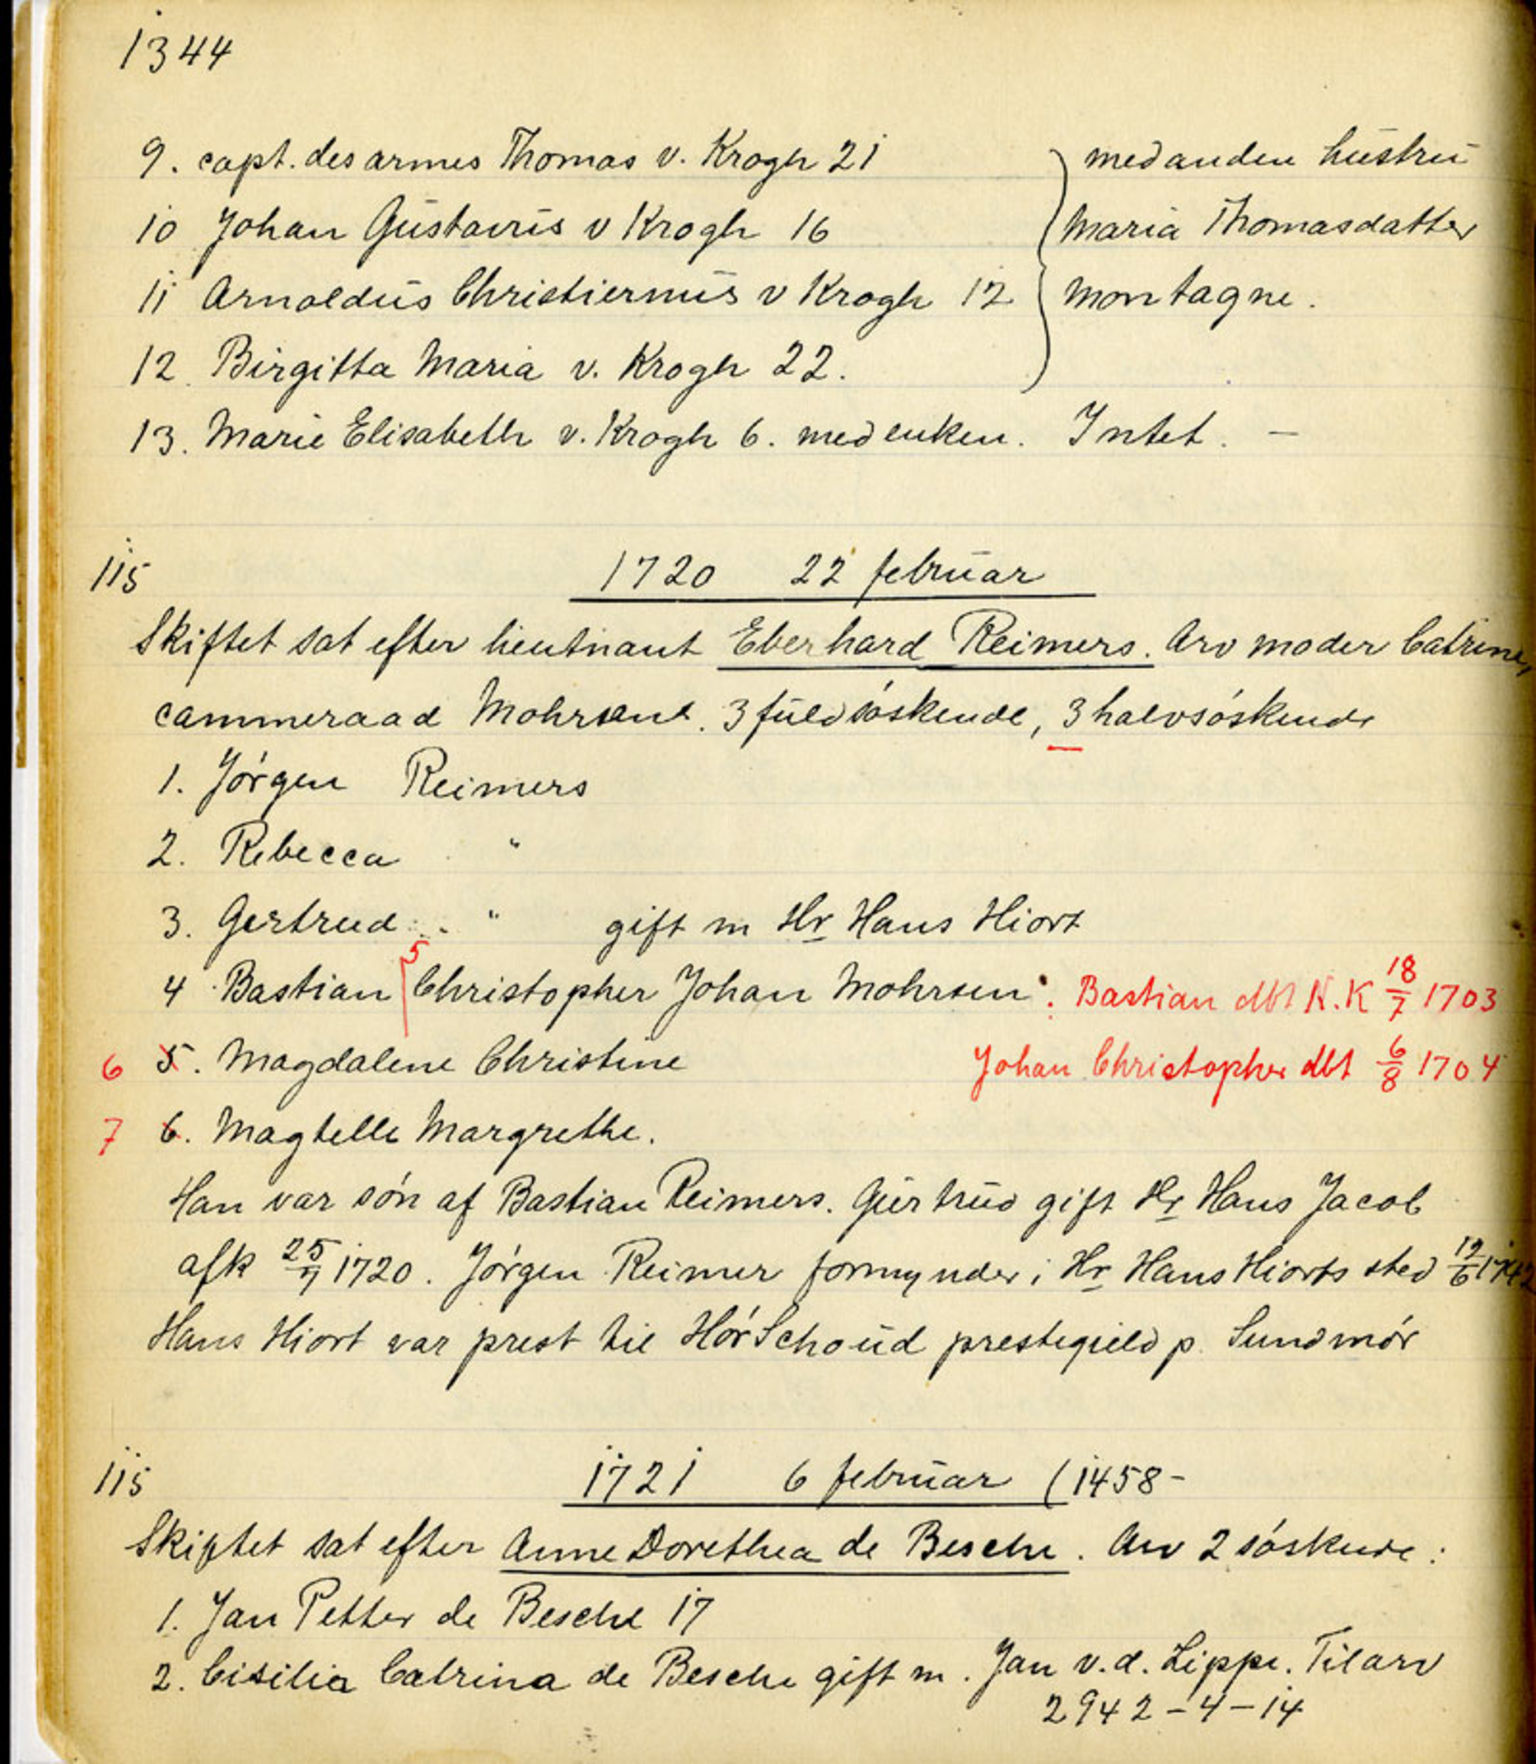 1344
9. capt. des armes Thomas v. Krogh 21 } med anden hustru
10 Johan Gustavus v Krogh 16 Maria Thomasdatter
11 Arnoldus Christiernus v Krogh 12 Montagne.
12. Birgitta Maria v. Krogh 22.
13. Marie Elisabeth v. Krogh 6. med enken. Intet. —
115 1720 22 februar
Skiftet sat efter lieutnant Eberhard Reimers. Arv moder Catrine,
cammeraad Mohrsens. 3 fuldsøskende, 3 halvsøskende
1. Jørgen Reimers
2. Rebecca "
3. Gertrud " gift m Hr Hans Hiort
4 Bastian 5 Christopher Johan Mohrsen. Bastian dbt K.K 18/7 1703
6 5. Magdalene Christine Johan Christopher dbt 6/8 1704
7 6. Magtelle Margrethe.
Han var søn af Bastian Reimers. Giertrud gift Hr Hans Jacob
afk 25/7 1720. Jørgen Reimer formynder i Hr Hans Hiorts sted 12/6
Hans Hiort var prest til HørSchoud prestegield p. Sundmør
115 1721 6 februar (1458-
Skiftet sat efter Anne Dorethea de Besche. Arv 2 søskende:
1. Jan Petter de Besche 17
2. Cisilia Catrina de Besche gift m. Jan v. d. Lippe. Til arv
2942-4-14